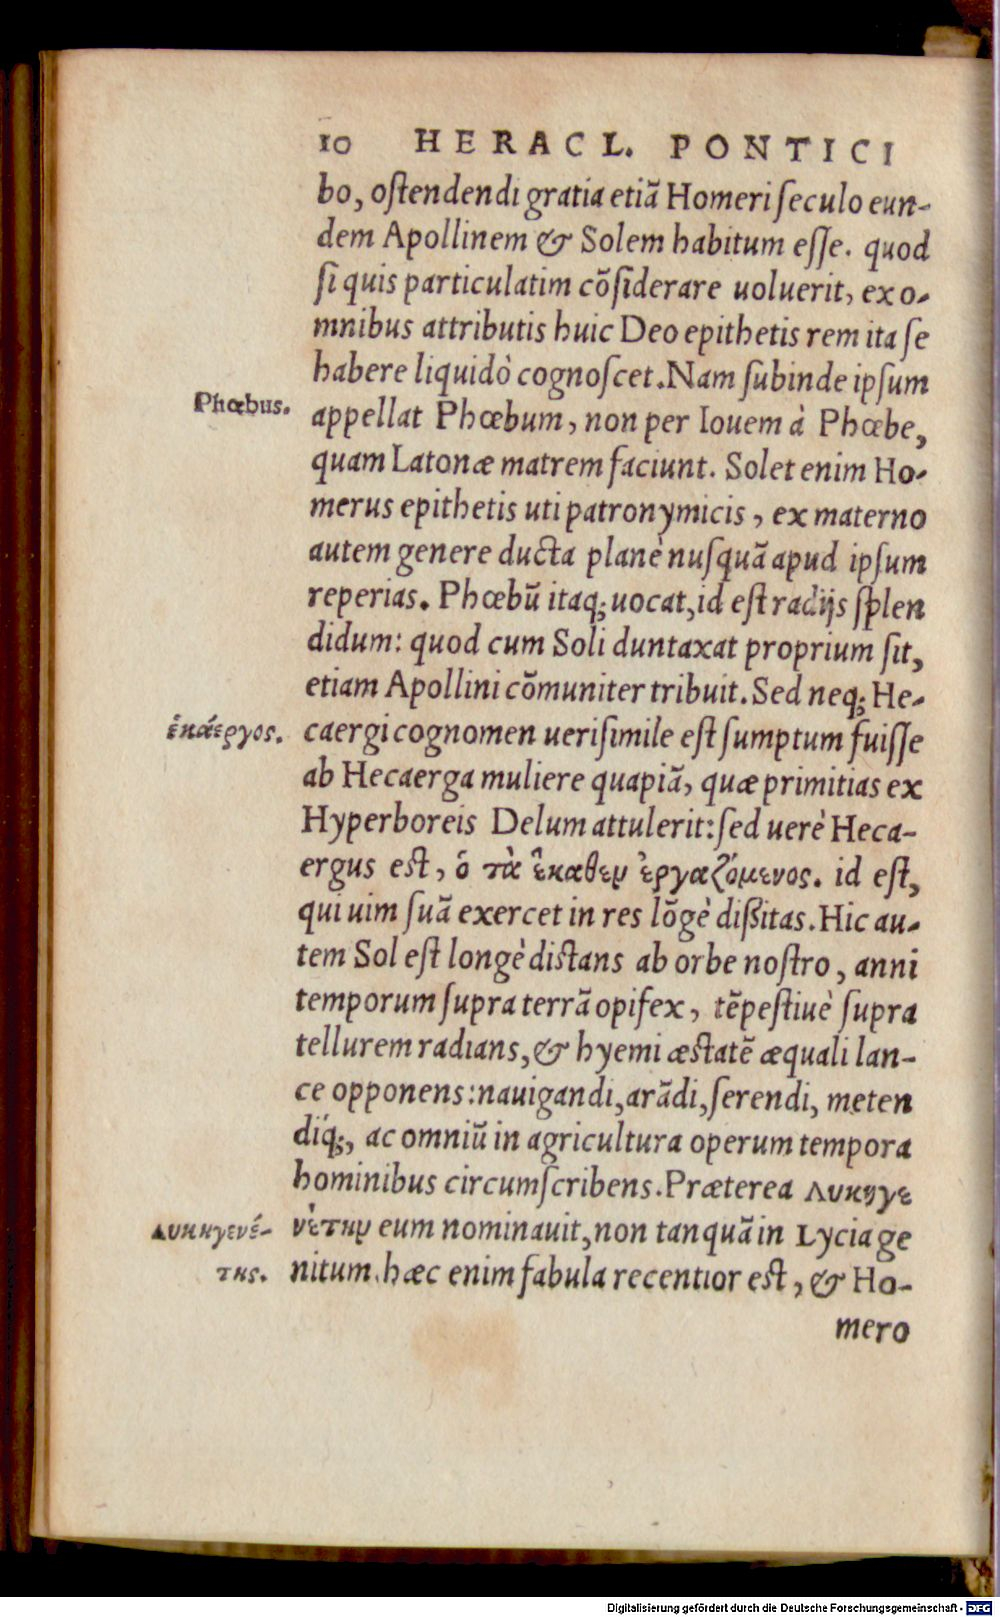 10 HERACL. PONTICI
bo, ostendendi gratia etiã Homeri seculo eun-
dem Apollinem & Solem habitum esse. quod
si quis particulatim cõsiderare uoluerit, ex o-
mnibus attributis huic Deo epithetis rem ita se
habere liquidò cognoscet. Nam subinde ipsum
Phœbus.
appellat Phœbum, non per Iouem à Phœbe,
quam Latonæ matrem faciunt. Solet enim Ho-
merus epithetis uti patronymicis, ex materno
autem genere ducta planè nusquã apud ipsum
reperias. Phœbũ itaq; uocat, id est radijs splen
didum: quod cum Soli duntaxat proprium sit,
etiam Apollini cõmuniter tribuit. Sed neq; He-
ἑκάεργος.
caergi cognomen uerisimile est sumptum fuisse
ab Hecaerga muliere quapiã, quæ primitias ex
Hyperboreis Delum attulerit: sed uerè Heca-
ergus est, ὁ τὰ ἕκαθεν ἐργαζόμενος. id est,
qui uim suã exercet in res lõgè dißitas. Hic au-
tem Sol est longè distans ab orbe nostro, anni
temporum supra terrã opifex, tẽpestiuè supra
tellurem radians, & hyemi æstatẽ æquali lan-
ce opponens: nauigandi, arãdi, serendi, meten
diq́;, ac omniũ in agricultura operum tempora
hominibus circumscribens. Præterea λυκηγε
λυκηγενέ-
νέτην eum nominauit, non tanquã in Lycia ge
της.
nitum. hæc enim fabula recentior est, & Ho-
mero
Digitalisierung gefördert durch die Deutsche Forschungsgemeinschaft - DFG